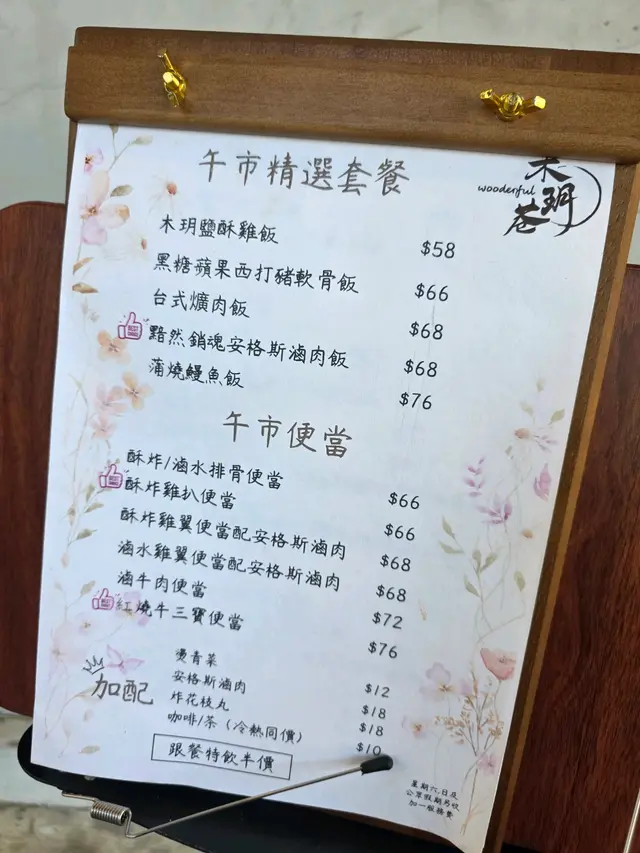 午市精選套餐
木玥巷
wooderful
木玥鹽酥雞飯 $58
黑糖蘋果西打豬軟骨飯 $66
台式爌肉飯 $68
黯然銷魂安格斯滷肉飯 $68
蒲燒鰻魚飯 $76
午市便當
酥炸/滷水排骨便當 $66
酥炸雞扒便當 $66
酥炸雞翼便當配安格斯滷肉 $68
滷水雞翼便當配安格斯滷肉 $68
滷牛肉便當 $72
紅燒牛三寶便當 $76
加配
燙青菜 $12
安格斯滷肉 $18
炸花枝丸 $18
咖啡/茶（冷熱同價） $10
跟餐特飲半價
星期六,日及
公眾假期另收
加一服務費